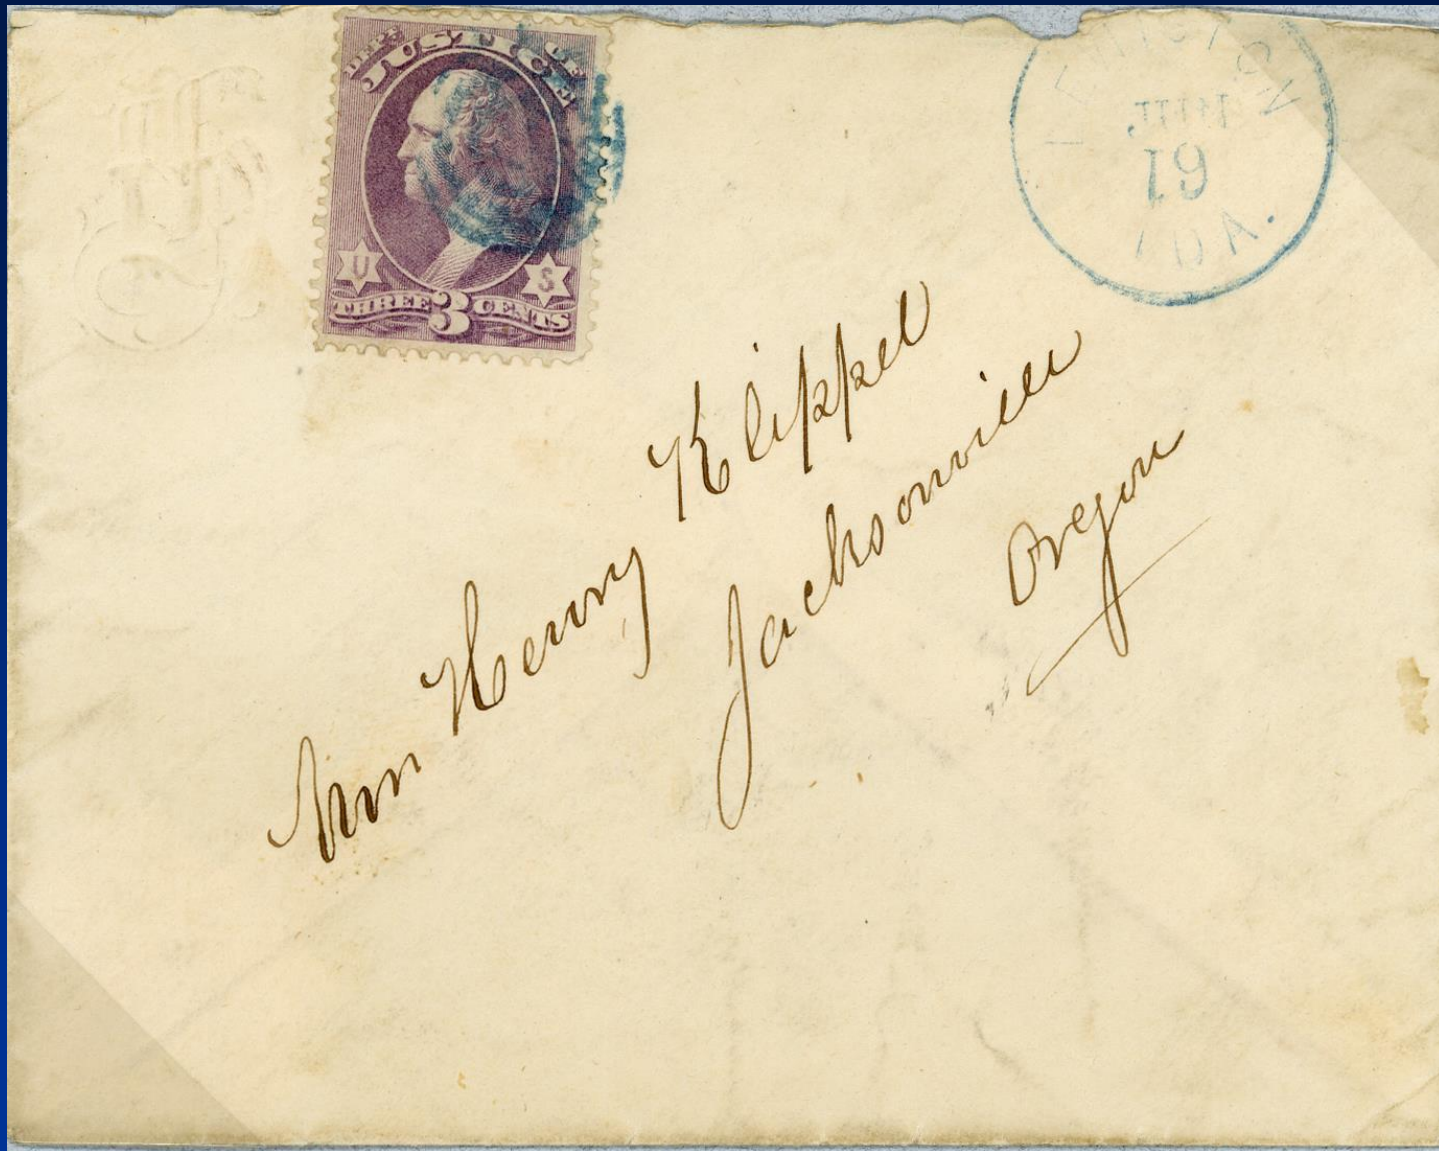 DEPT. OF
JUSTICE
U S
THREE 3 CENTS
LEWISTON
JUL.
19
IDA.
Henry Klippel
Jacksonville
Oregon